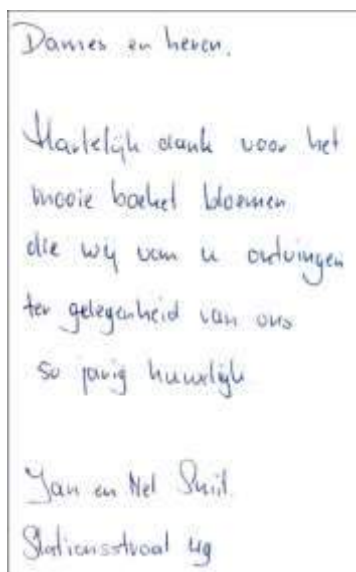 Dames en heren,
Hartelijk dank voor het
mooie boeket bloemen
die wij van u ontvingen
ter gelegenheid van ons
50 jarig huwelijk
Jan en Nel Smit
Stationsstraat 49